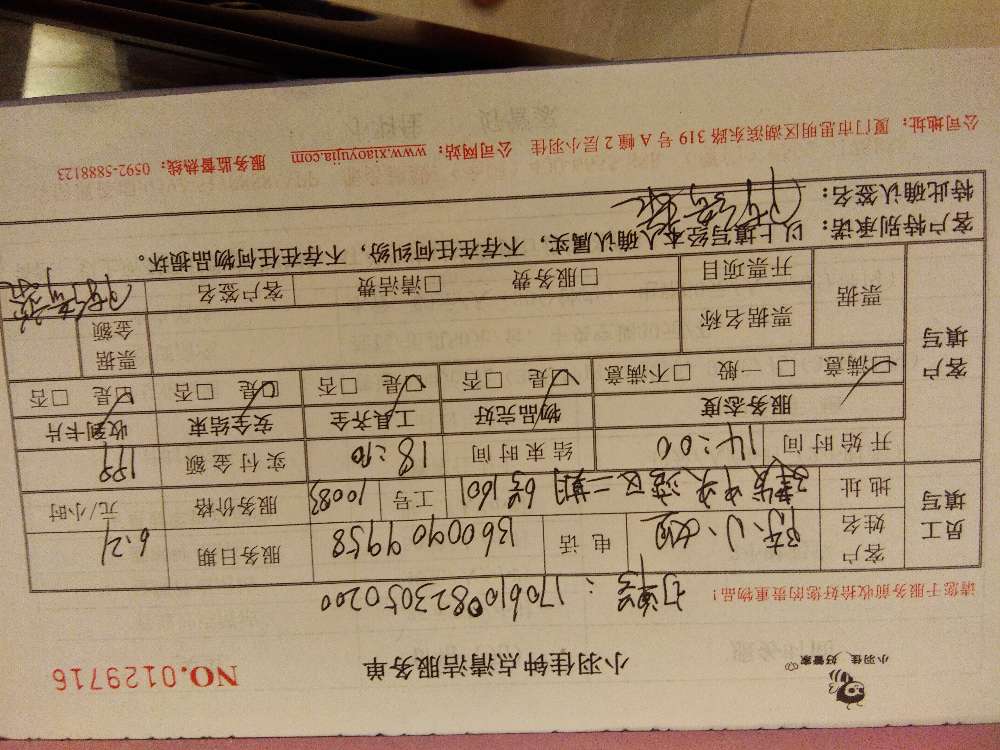 小羽佳 好管家
小羽佳钟点清洁服务单
NO.0129716
请您于服务前收拾好您的贵重物品!
订单号:1706100823050200
员工填写
客户姓名 陈小姐 电话 13600909958 服务日期 6.21
地址 建发中央湾区二期6号1601 工号 10083 服务价格 元/小时
开始时间 14:00 结束时间 18:10 实付金额 199
客户填写
服务态度 物品完好 工具齐全 安全结束 收到卡片
☑满意 □一般 □不满意 ☑是 □否 ☑是 □否 ☑是 □否 ☑是 □否
票据 票据名称 票据金额
开票项目 □服务费 □清洁费 客户签名
客户特别承诺:以上填写经本人确认属实,不存在任何纠纷,不存在任何物品损坏。
特此确认签名:
公司地址:厦门市思明区湖滨东路319号A幢2层小羽佳 公司网站:www.xiaoyujia.com 服务监督热线:0592-5888123